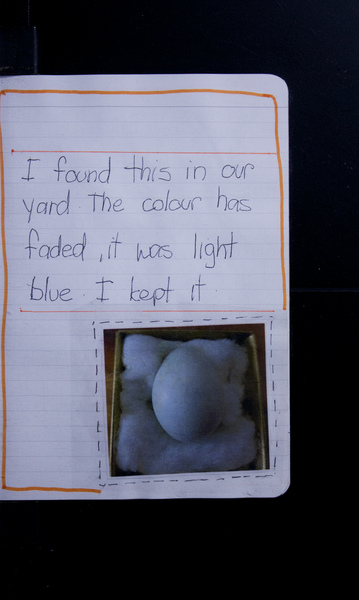 I found this in our
yard. The colour has
faded, it was light
blue. I kept it.